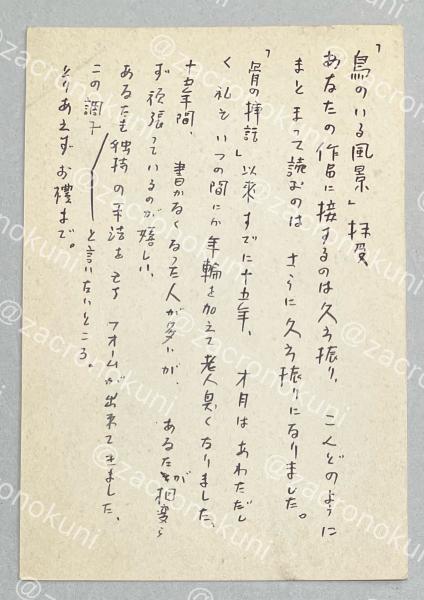 「鳥のいる風景」拝受
あなたの作品に接するのは久方振り、こんどのように
まとまって読むのは さらに久方振りになりました。
「骨の挿話」以来すでに十五年、才月はあわただし
く 私もいつの間にか年輪を加えて老人臭くなりました、
十五年間、書かなくなった人が多いが、あなたが相変ら
ず頑張っているのが嬉しい、
あなたも独特の手法を もて フォームが出来てきました、
この調子/――と言いたいところ。
とりあえずお禮まで。
@zacronokuni